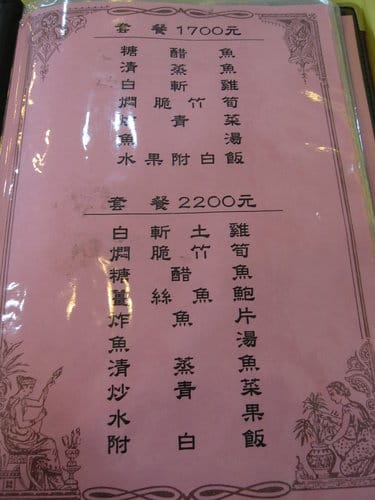 套 餐 1700元
糖 醋 魚
清 蒸 魚
白 斬 雞
燜 脆 竹 筍
炒 青 菜
魚 湯
水 果 附 白 飯
套 餐 2200元
白 斬 土 雞
燜 脆 竹 筍
糖 醋 魚
薑 絲 魚 鮑
炸 魚 片
魚 湯
清 蒸 魚
炒 青 菜
水 果
附 白 飯